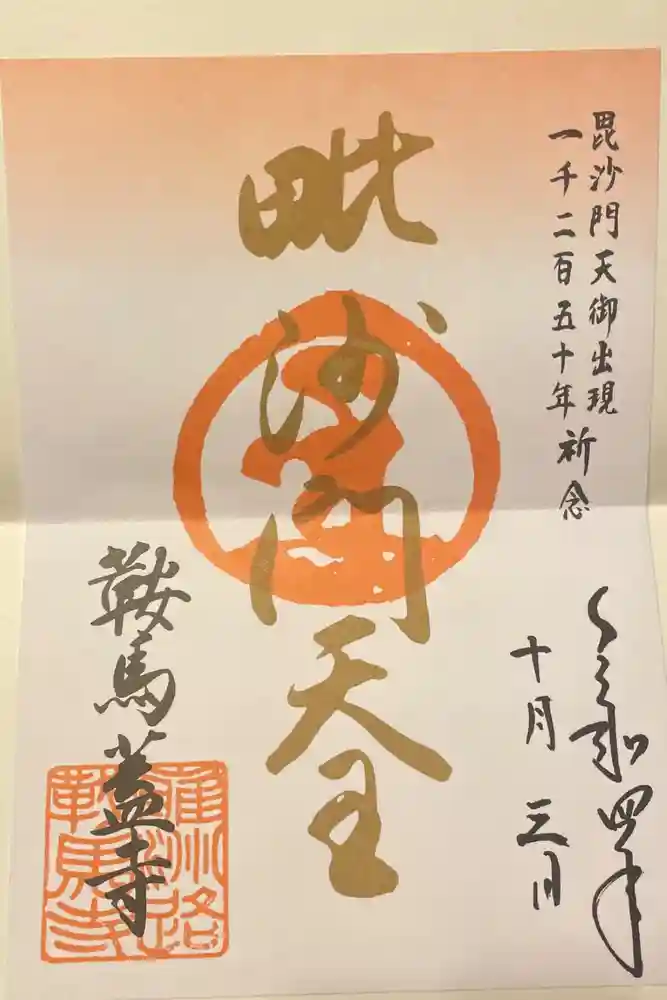 毘沙門天御出現
一千二百五十年祈念
令和四年
十月三日
毗沙門天王
鞍馬蓋寺
雍州路
鞍馬寺